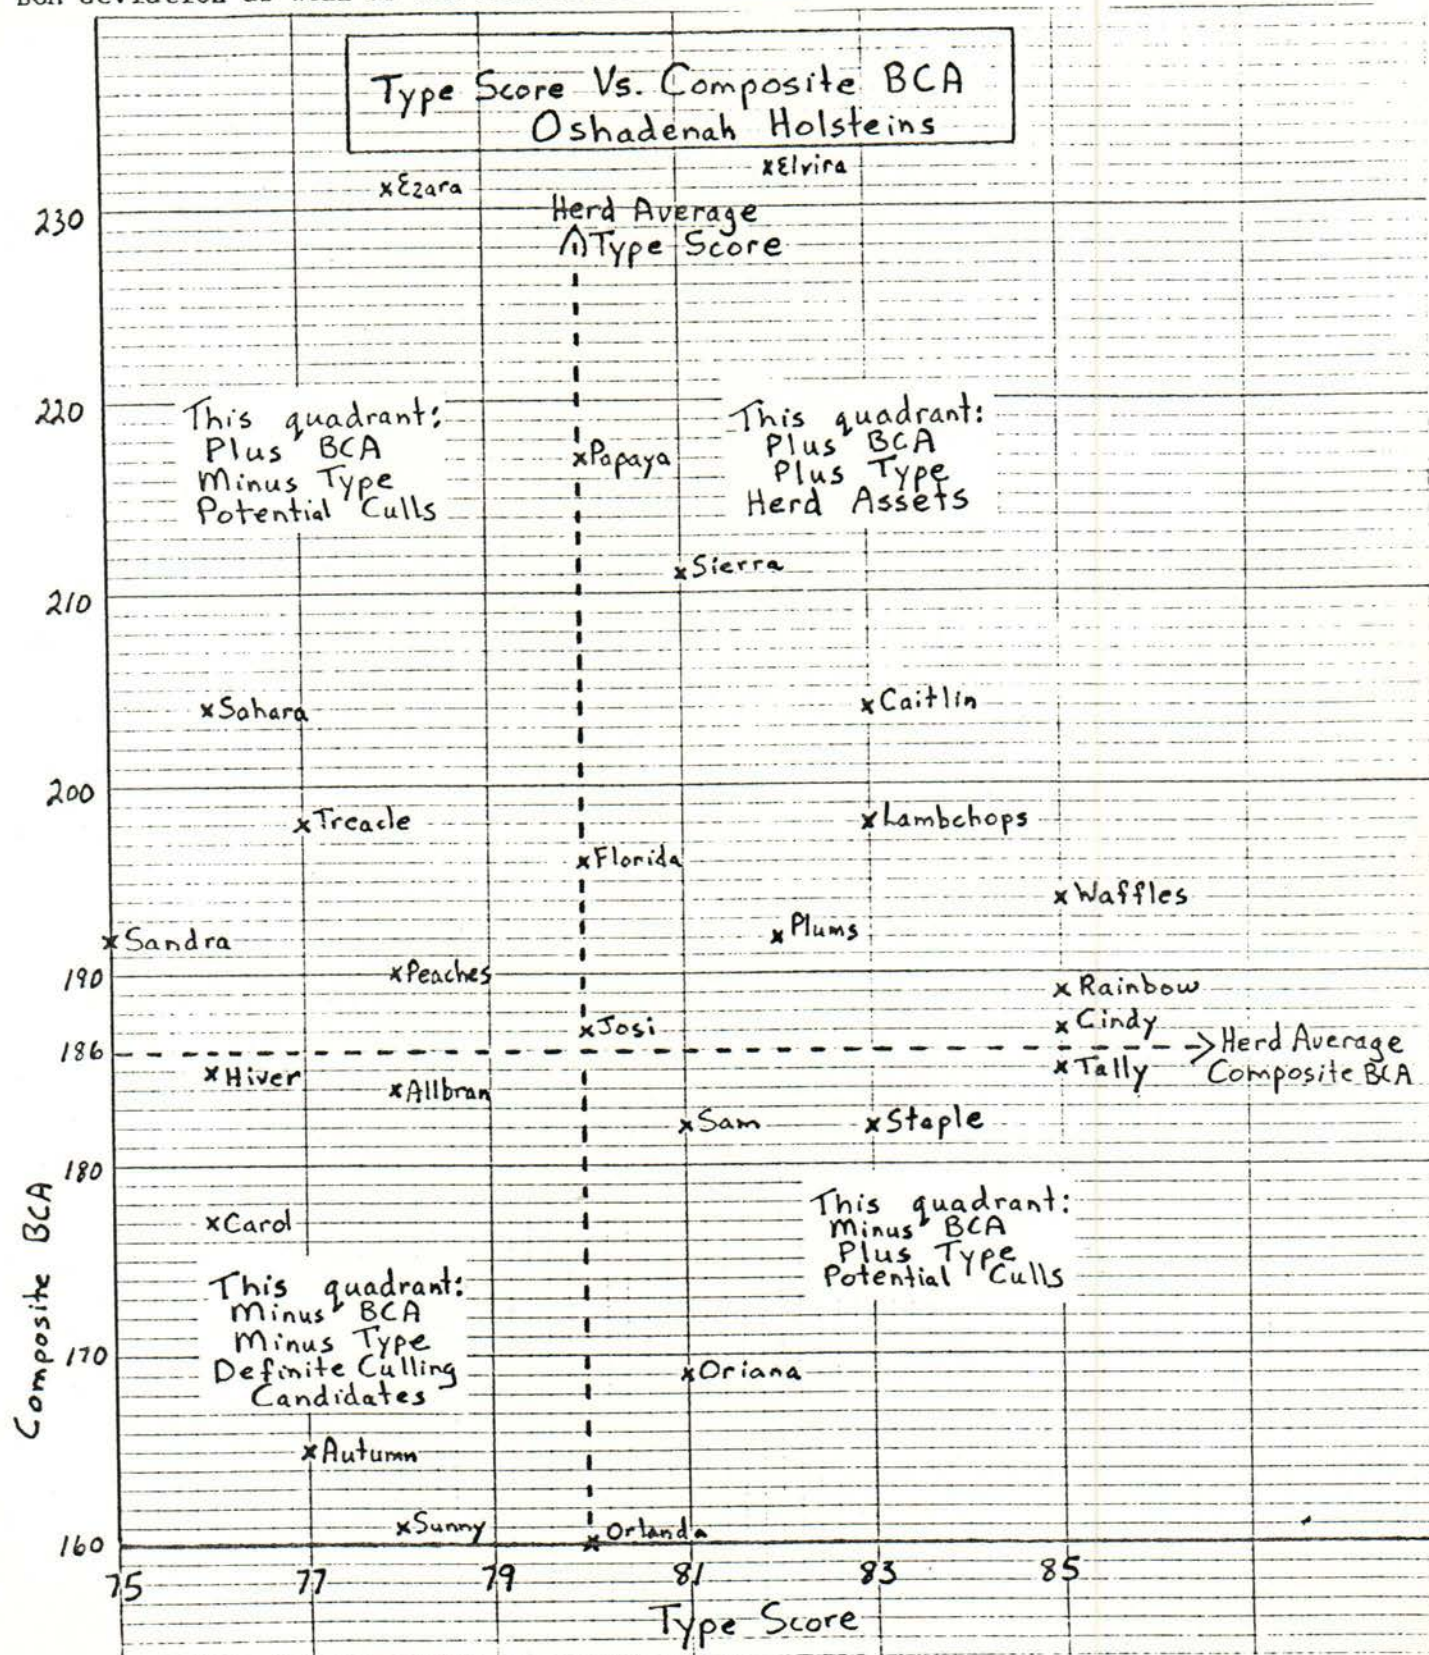 Type Score Vs. Composite BCA
Oshadenah Holsteins
xElvira
xEzara
230
Herd Average
Type Score
220
This quadrant:
Plus BCA
Minus Type
Potential Culls
This quadrant:
Plus BCA
Plus Type
Herd Assets
xPapaya
xSierra
210
xSahara
xCaitlin
200
xTreacle
xLambchops
xFlorida
xWaffles
xSandra
xPlums
190
xPeaches
xRainbow
xJosi
xCindy
186
Herd Average
Composite BCA
xHiver
xTally
xAllbran
xSam
xStaple
180
xCarol
This quadrant:
Minus BCA
Plus Type
Potential Culls
Composite BCA
This quadrant:
Minus BCA
Minus Type
Definite Culling
Candidates
170
xOriana
xAutumn
xSunny
xOrlanda
160
75 77 79 81 83 85
Type Score